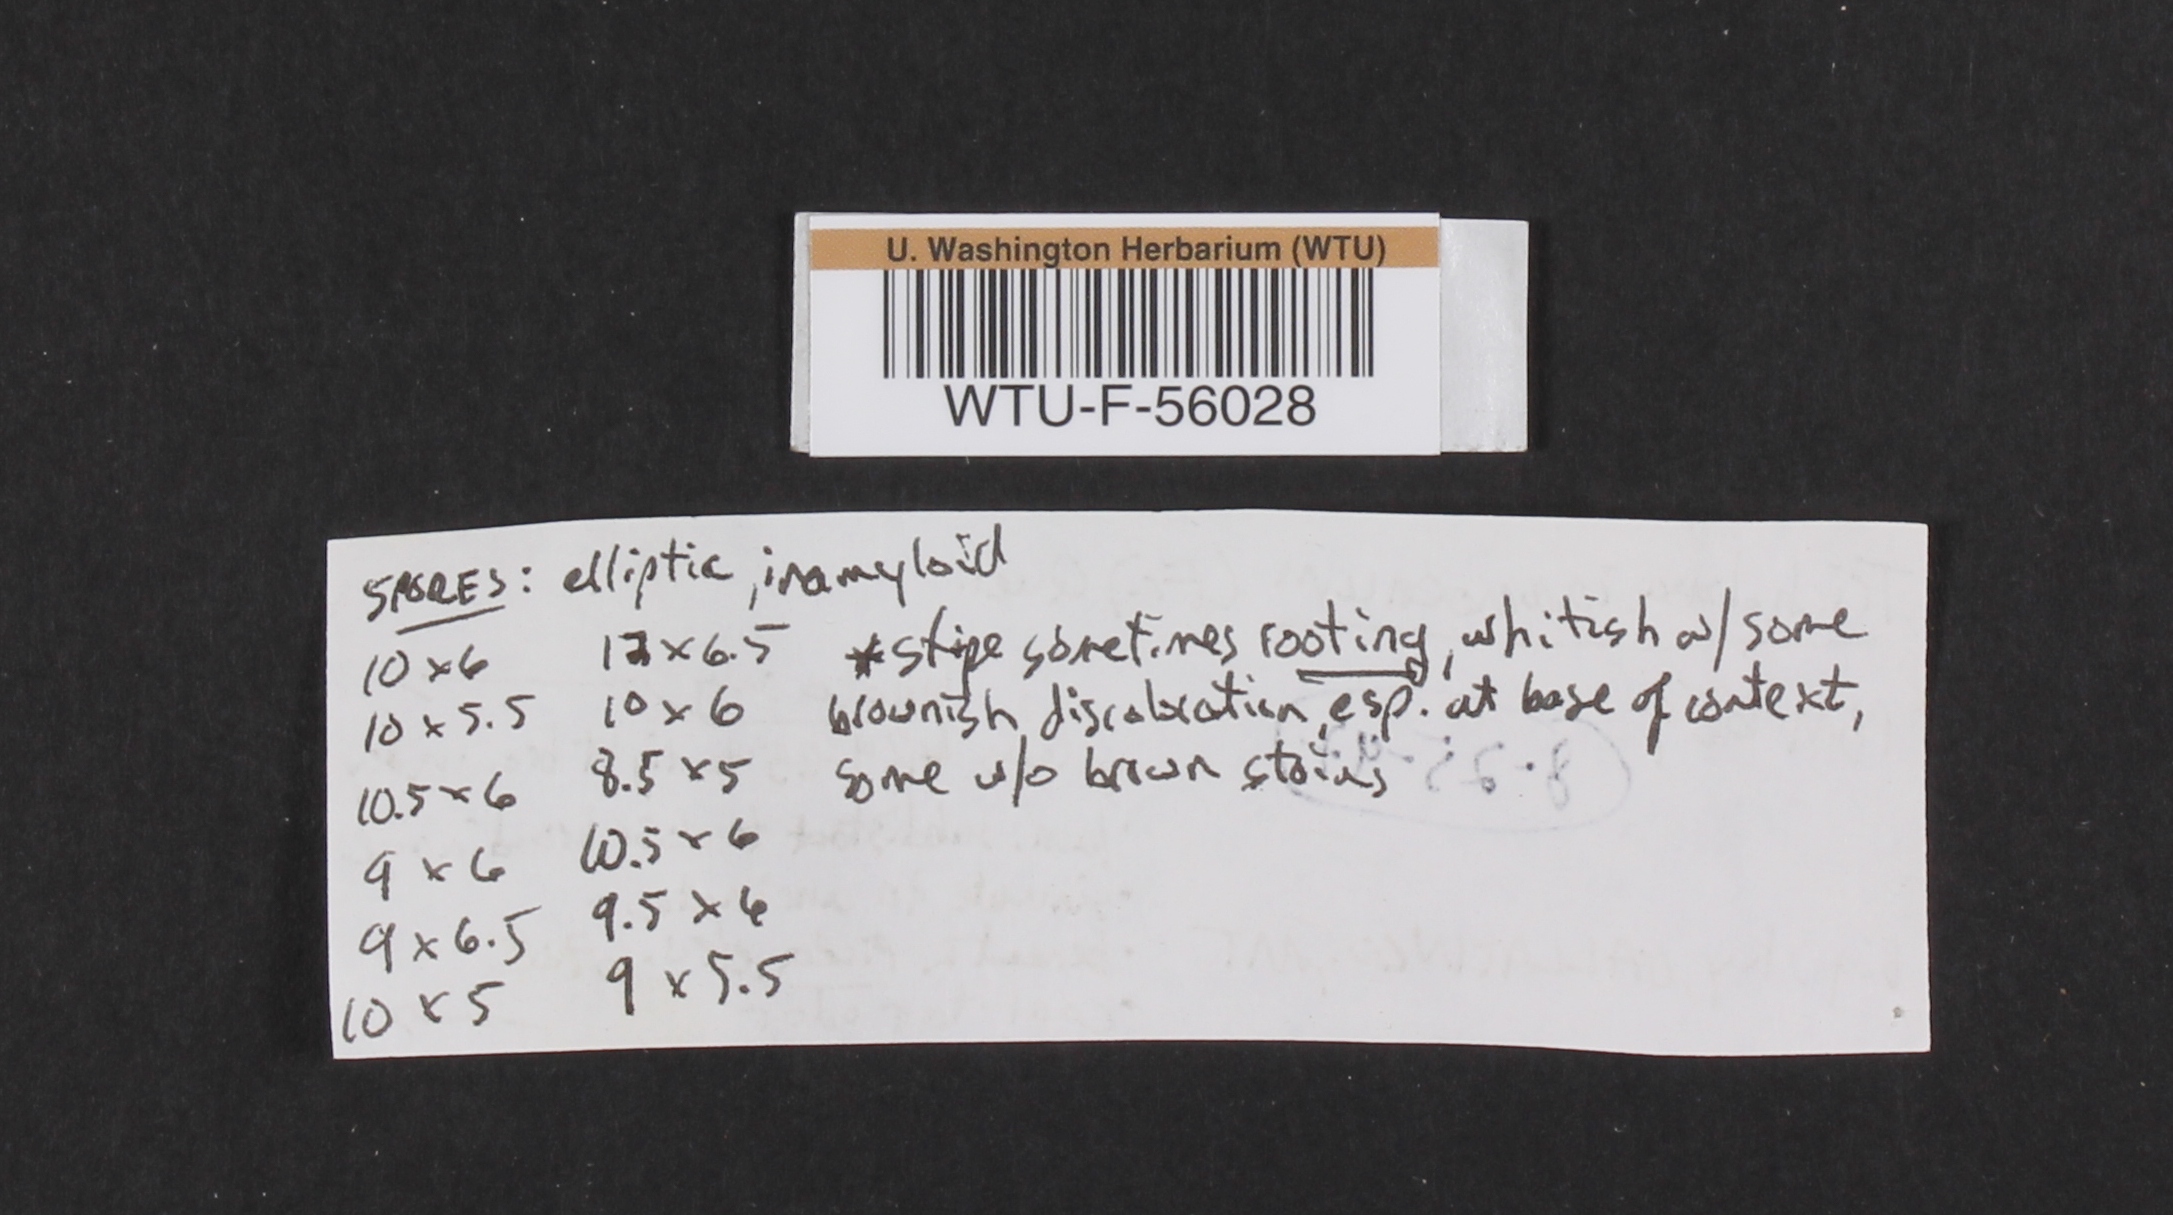 U. Washington Herbarium (WTU)
WTU-F-56028
SPORES: elliptic, inamyloid
10 x 6
10 x 5.5
10.5 x 6
9 x 6
9 x 6.5
10 x 5
12 x 6.5
10 x 6
8.5 x 5
10.5 x 6
9.5 x 6
9 x 5.5
*stipe sometimes rooting, whitish w/ some
brownish discoloration, esp. at base of context,
some w/o brown stains